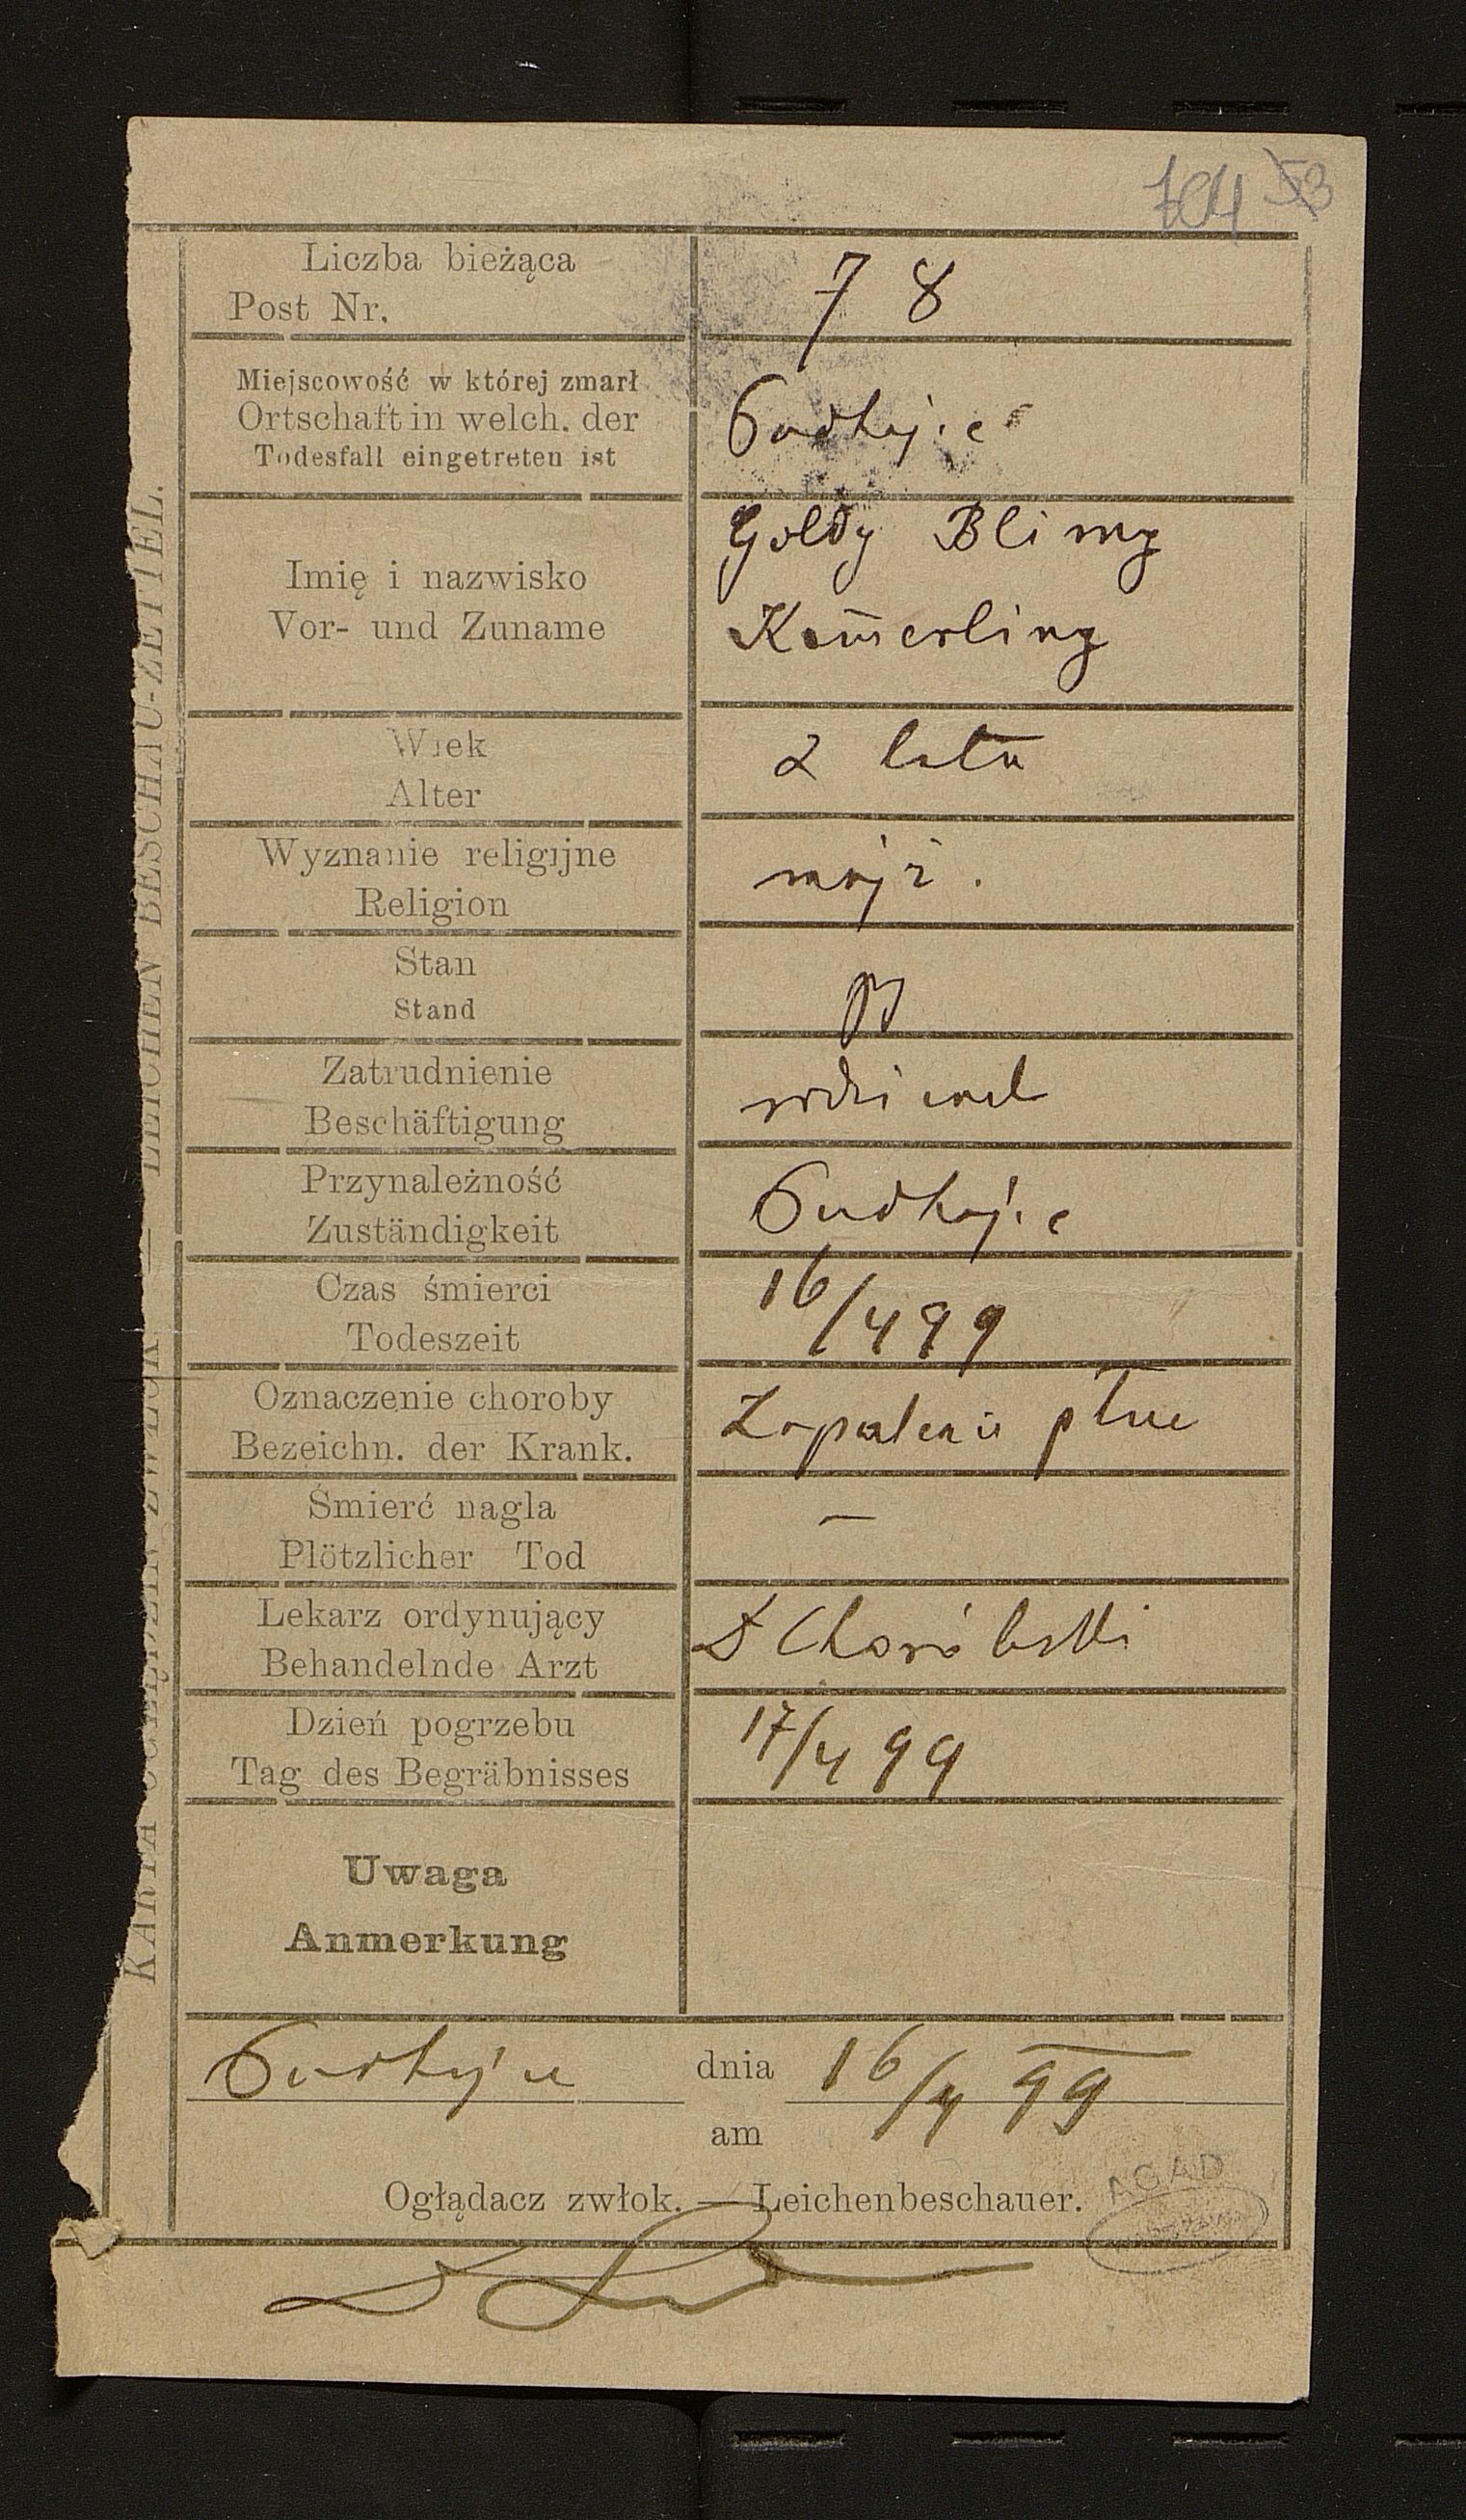 704 53
Liczba bieżąca
Post Nr.
7 8
Miejscowość w której zmarł
Ortschaft in welch. der
Todesfall eingetreten ist
Imię i nazwisko
Vor- und Zuname
Goldy Blimy
Kam̄erling
Wiek
Alter
2 lata
Wyznanie religijne
Religion
mojż.
Stan
Stand
Zatrudnienie
Beschäftigung
Przynależność
Zuständigkeit
Czas śmierci
Todeszeit
16/4 99
Oznaczenie choroby
Bezeichn. der Krank.
Zapalenie płuc
Śmierć nagla
Plötzlicher Tod
–
Lekarz ordynujący
Behandelnde Arzt
Choróbski
Dzień pogrzebu
Tag des Begräbnisses
17/4 99
Uwaga
Anmerkung
dnia 16/4 99
am
Oglądacz zwłok. — Leichenbeschauer.
AGAD
LEICHEN BESCHAU-ZETTEL.